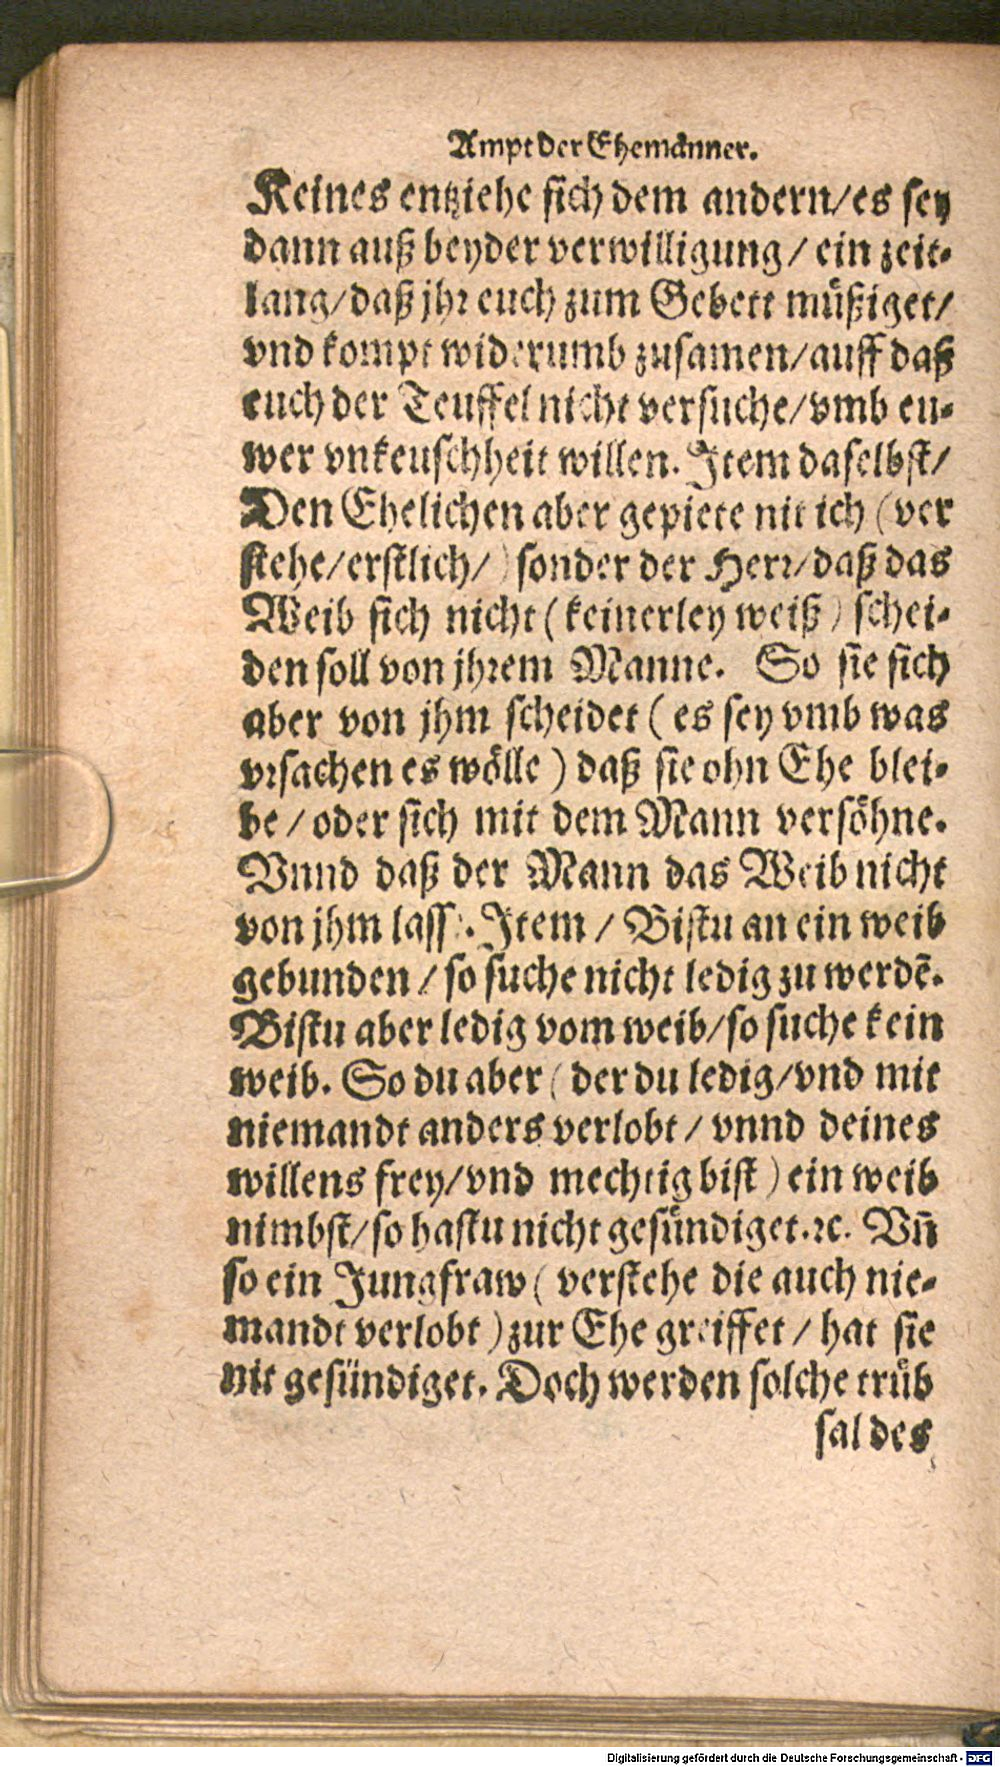 Ampt der Ehemänner.
Keines entziehe sich dem andern/es sey
dann auß beyder verwilligung/ ein zeit-
lang/daß jhr euch zum Gebett müßiget/
vnd kompt widerumb zusamen/auff daß
euch der Teuffel nicht versuche/vmb eu-
wer vnkeuschheit willen. Item daselbst/
Den Ehelichen aber gepiete nit ich (ver
stehe/erstlich/) sonder der Herr/daß das
Weib sich nicht (keinerley weiß) schei-
den soll von jhrem Manne. So sie sich
aber von jhm scheidet (es sey vmb was
vrsachen es wölle) daß sie ohn Ehe blei-
be/oder sich mit dem Mann versöhne.
Vnnd daß der Mann das Weib nicht
von jhm lasse. Item/ Bistu an ein weib
gebunden/so suche nicht ledig zu werdẽ.
Bistu aber ledig vom weib/so suche kein
weib. So du aber (der du ledig/vnd mit
niemandt anders verlobt/ vnnd deines
willens frey/vnd mechtig bist) ein weib
nimbst/so hastu nicht gesündiget.ꝛc. Vñ
so ein Jungfraw (verstehe die auch nie-
mandt verlobt) zur Ehe greiffet/ hat sie
nit gesündiget. Doch werden solche trüb
sal des
Digitalisierung gefördert durch die Deutsche Forschungsgemeinschaft - DFG